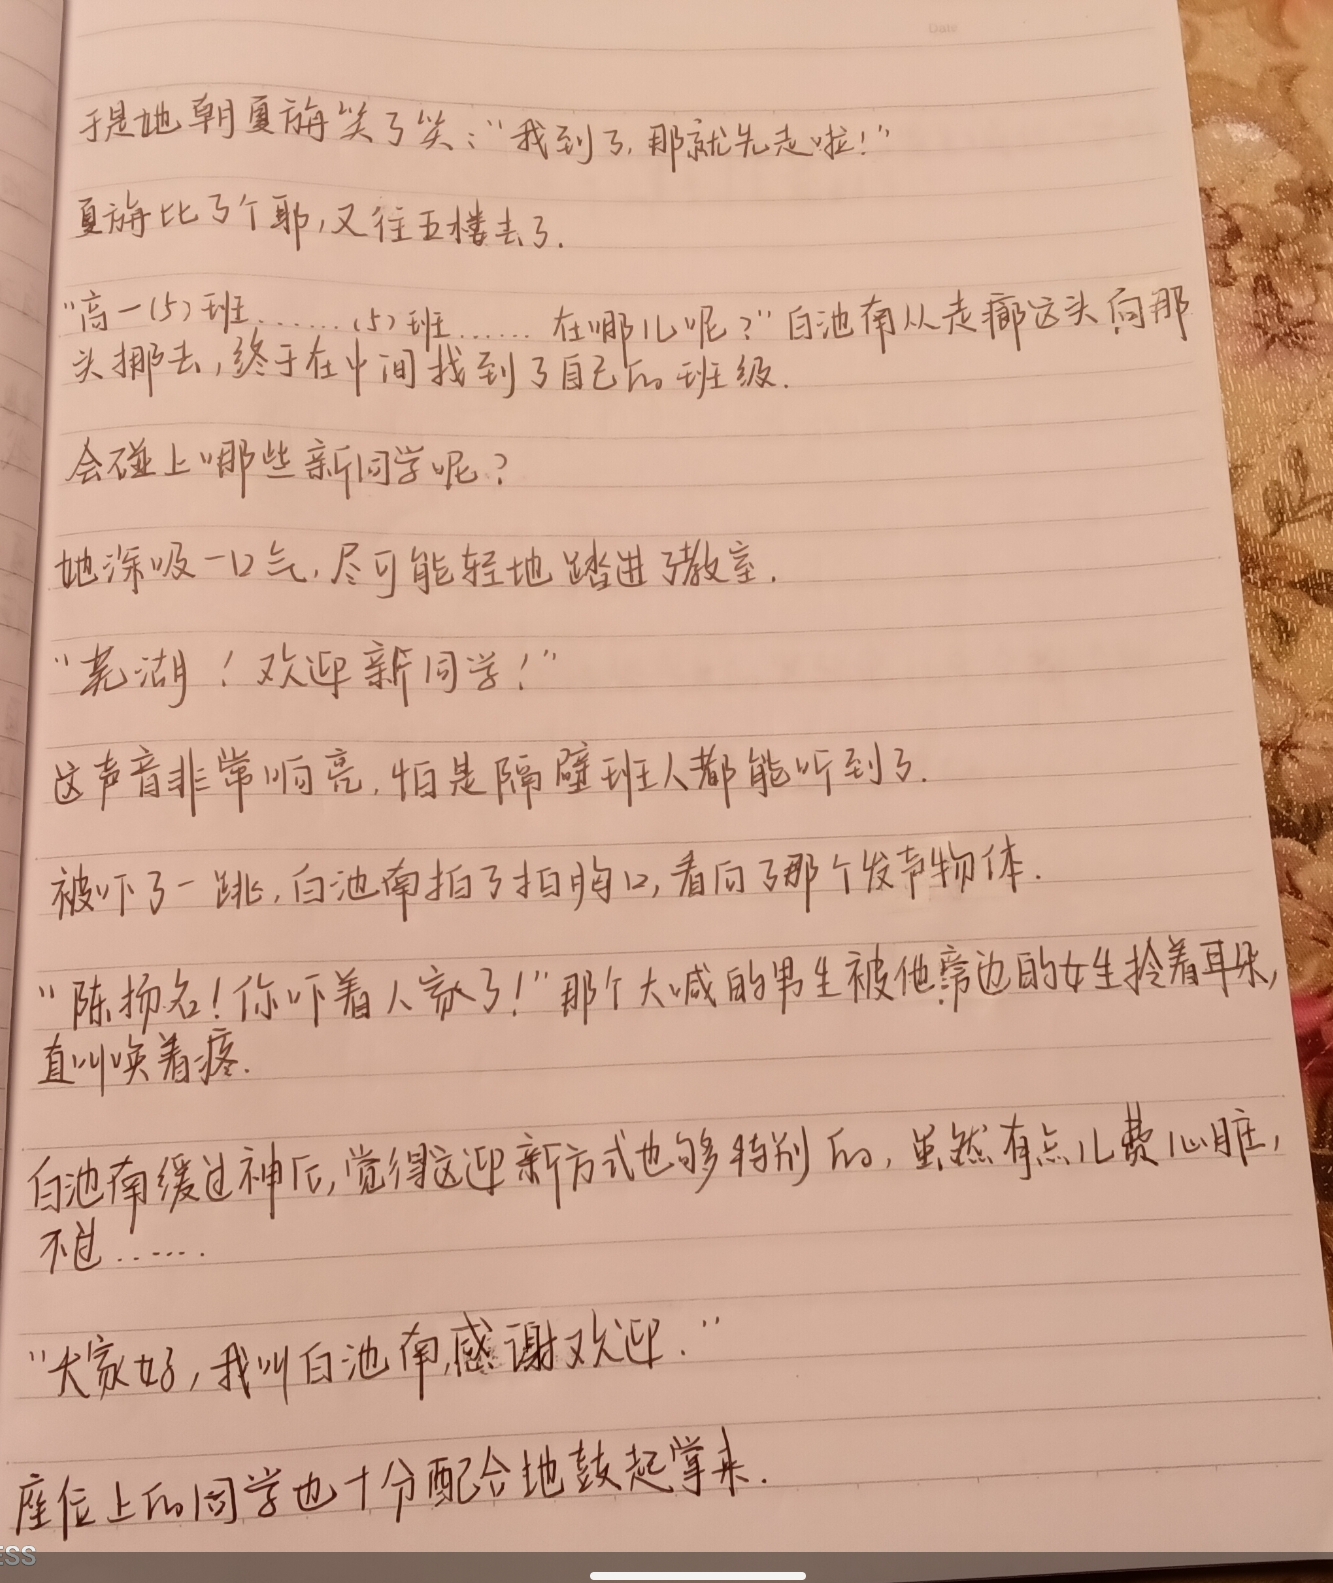 Date
于是她朝夏旃笑了笑："我到了,那就先走啦!"
夏旃比了个耶,又往五楼去了.
"高一(5)班……(5)班……在哪儿呢?"白池南从走廊这头向那
头挪去,终于在中间找到了自己的班级.
会碰上哪些新同学呢?
她深吸一口气,尽可能轻地踏进了教室.
"芜湖!欢迎新同学!"
这声音非常响亮,怕是隔壁班人都能听到了.
被吓了一跳,白池南拍了拍胸口,看向了那个发声物体.
"陈扬名!你吓着人家了!"那个大喊的男生被他旁边的女生拎着耳朵,
直叫唤着疼.
白池南缓过神后,觉得这迎新方式也够特别的,虽然有点儿费心脏,
不过……
"大家好,我叫白池南,感谢欢迎."
座位上的同学也十分配合地鼓起掌来.
ESS